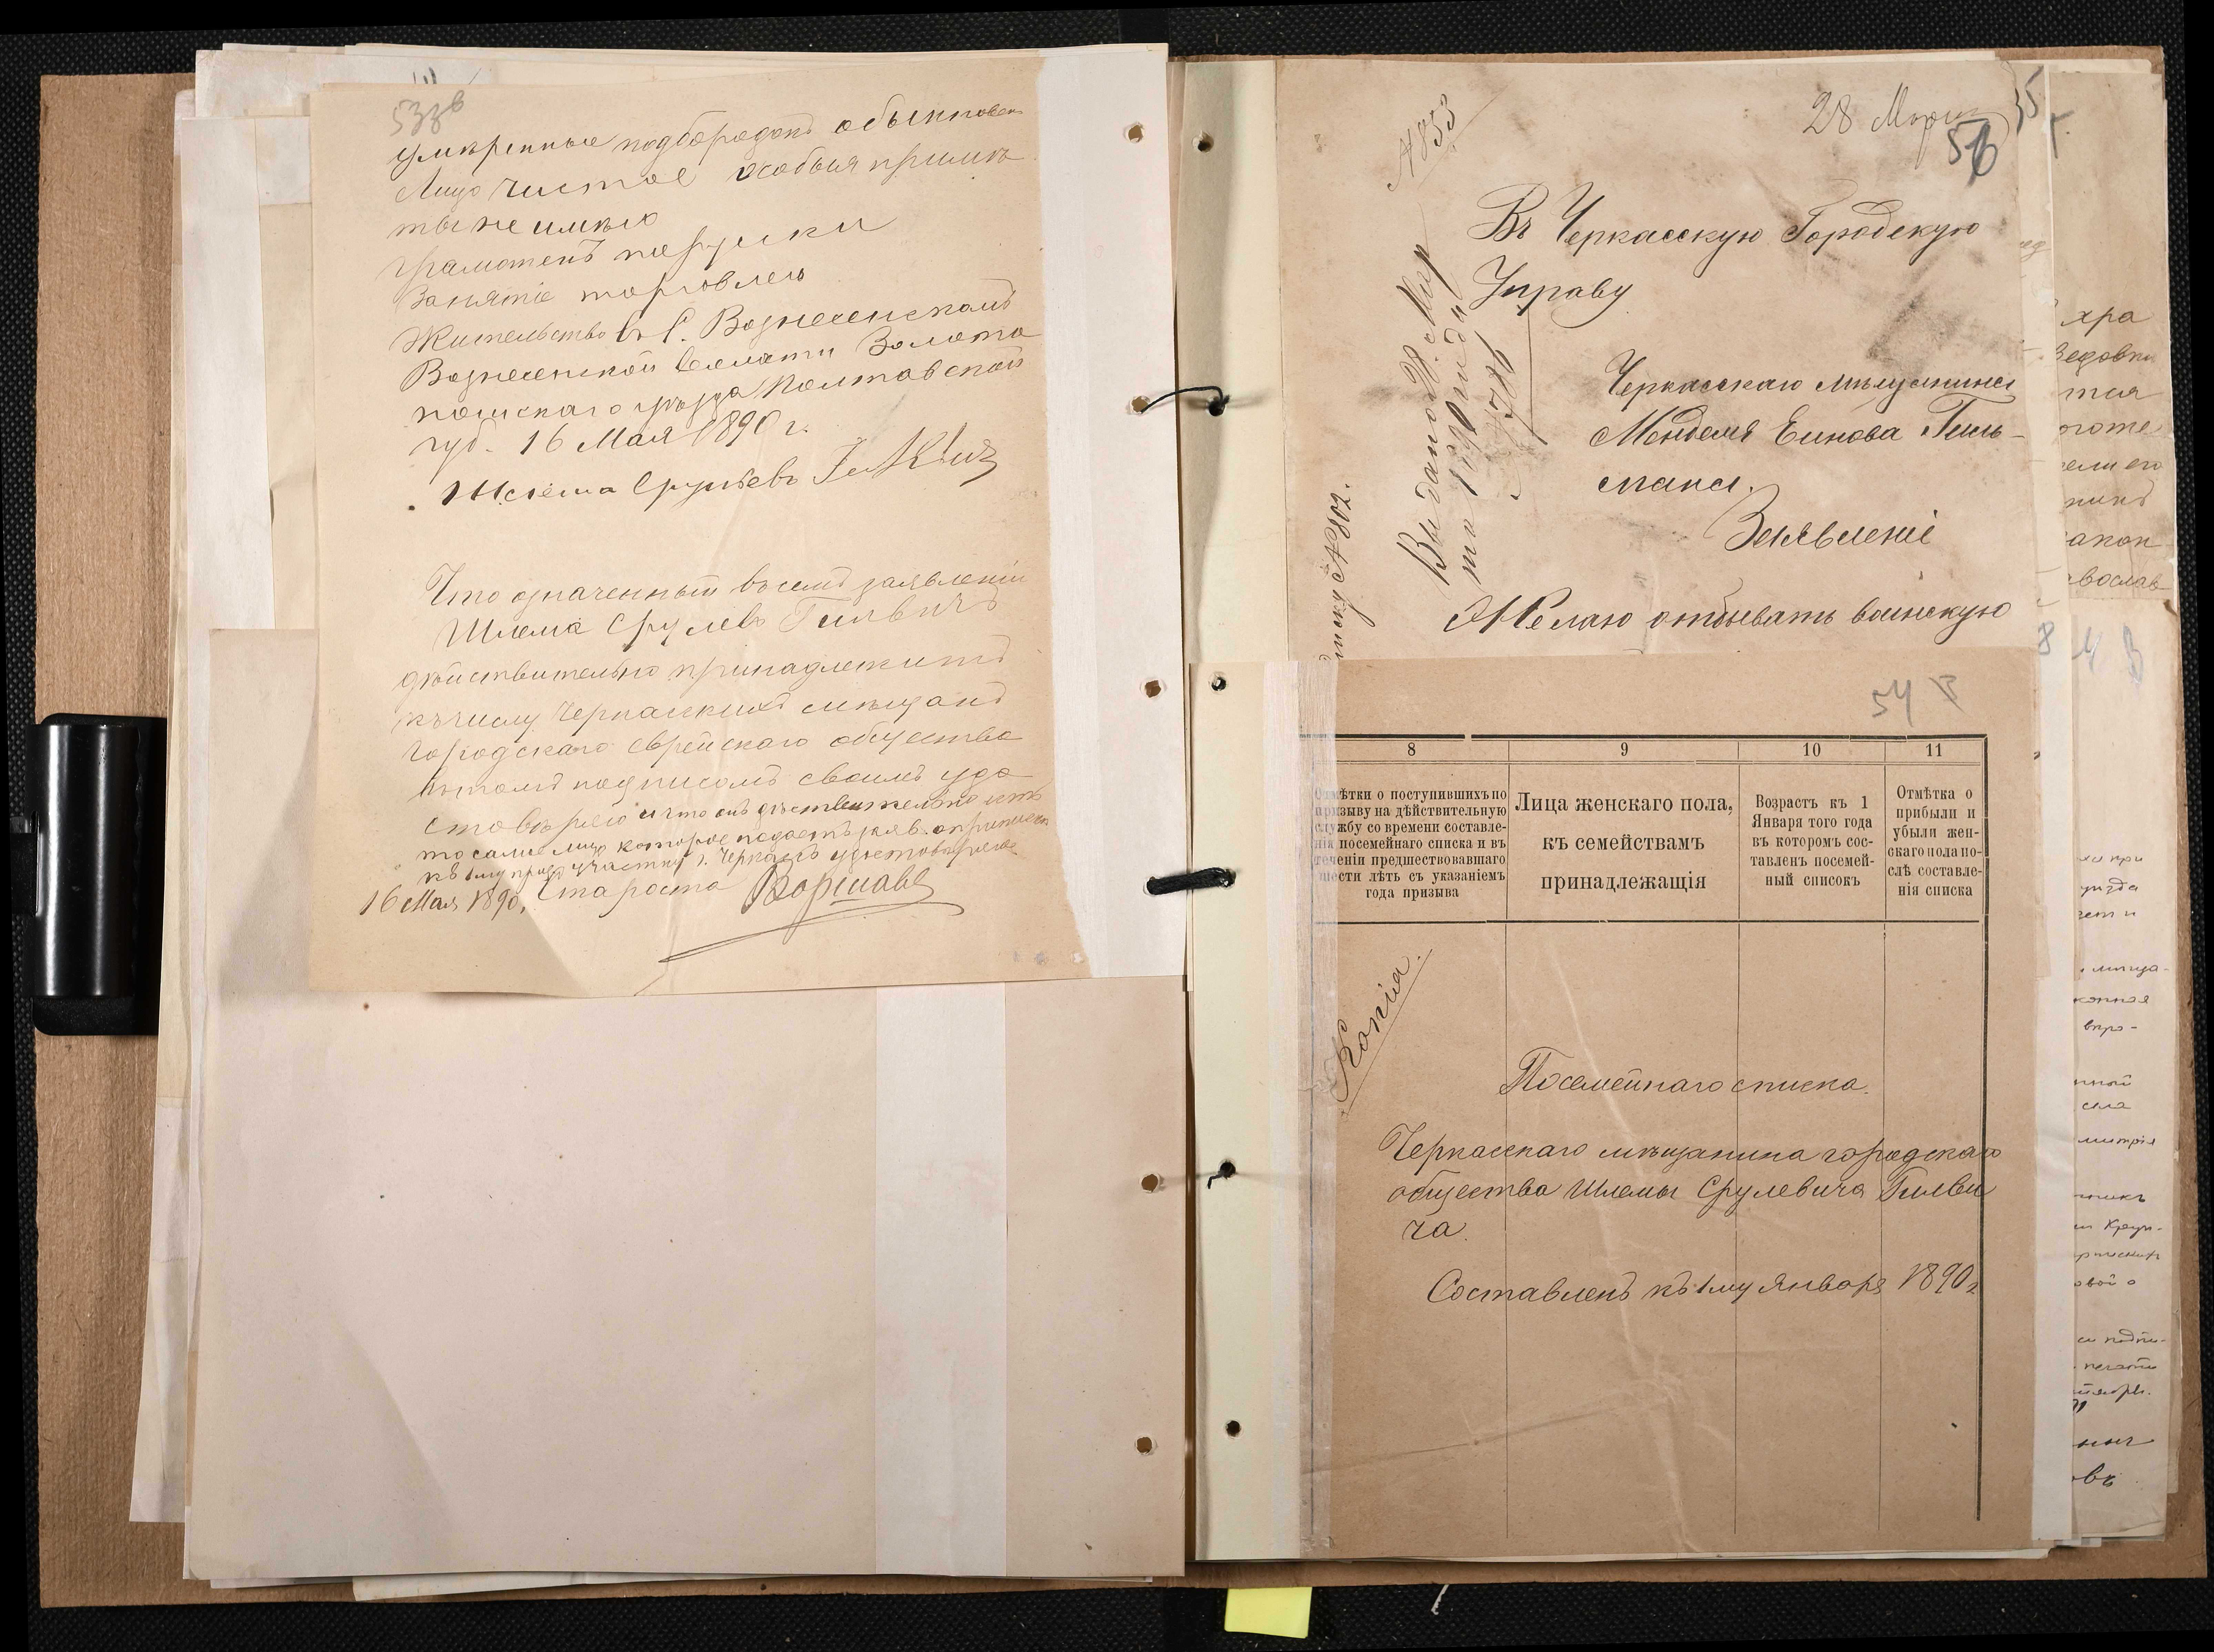 умѣренные подбородокъ обыкновен
Лицо чистое особыя примѣ
ты не имѣю
грамотенъ порусски
Занятіе торговлею
Жительство въ С. Вознесенскомъ
Вознесенской волости Золото
ношскаго уѣзда Полтавской
губ. 16 Мая 1890 г.
Шлема Срулевъ
Что означенный въ семъ заявленіи
Шлема Срулевъ Гилвичъ
дѣйствительно принадлежитъ
къ числу Черкасскихъ мѣщанъ
городскаго еврейскаго общества
въ томъ подписомъ своимъ удо
стовѣряю и что онъ дѣствительно есть
то самое лицо которое подаетъ заяв. о припискѣ
къ 1му приз участку г. Черкассъ удостовѣряю
16 Мая 1890, Староста
28 Марта
56
№ 853
Въ Черкасскую Городскую
Управу
Черкасскаго мѣщанина
Менделя Еинова Гиль-
мана.
Заявленіе
Желаю отбывать воинскую
Выдано 28 Мар
та 1890 года
№ 786
№ 802.
54
8 9 10 11
Отмѣтки о поступившихъ по
призыву на дѣйствительную
службу со времени составле-
нія посемейнаго списка и въ
теченіи предшествовавшаго
шести лѣтъ съ указаніемъ
года призыва
Лица женскаго пола,
къ семействамъ
принадлежащія
Возрастъ къ 1
Января того года
въ которомъ сос-
тавленъ посемей-
ный списокъ
Отмѣтка о
прибыли и
убыли жен-
скаго пола по-
слѣ составле-
нія списка
Копія.
Посемейнаго списка.
Черкасскаго мѣщанина городскаго
общества Шлемы Срулевича Гилви
ча.
Составленъ къ 1му января 1890 г